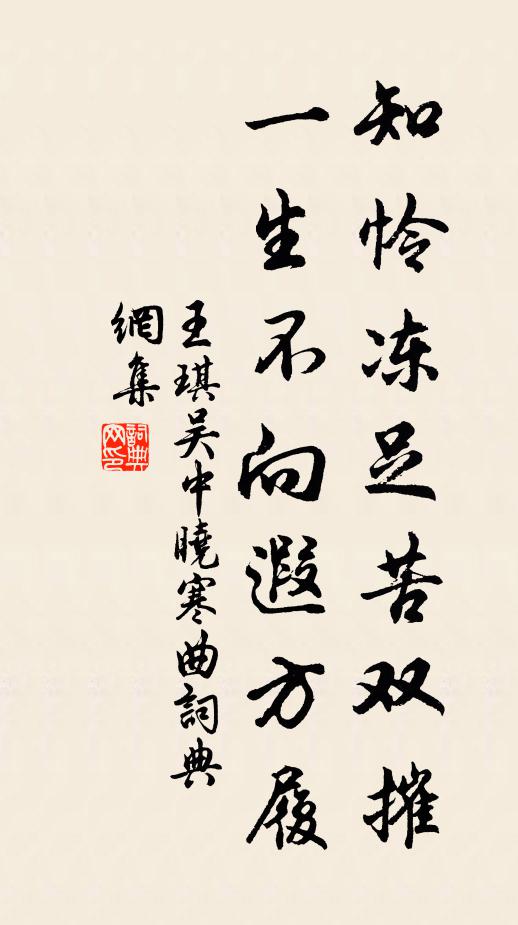 知怜冻足苦双摧
一生不向遐方履
王琪吴中曉寒曲詞典
網集
詞典
网印